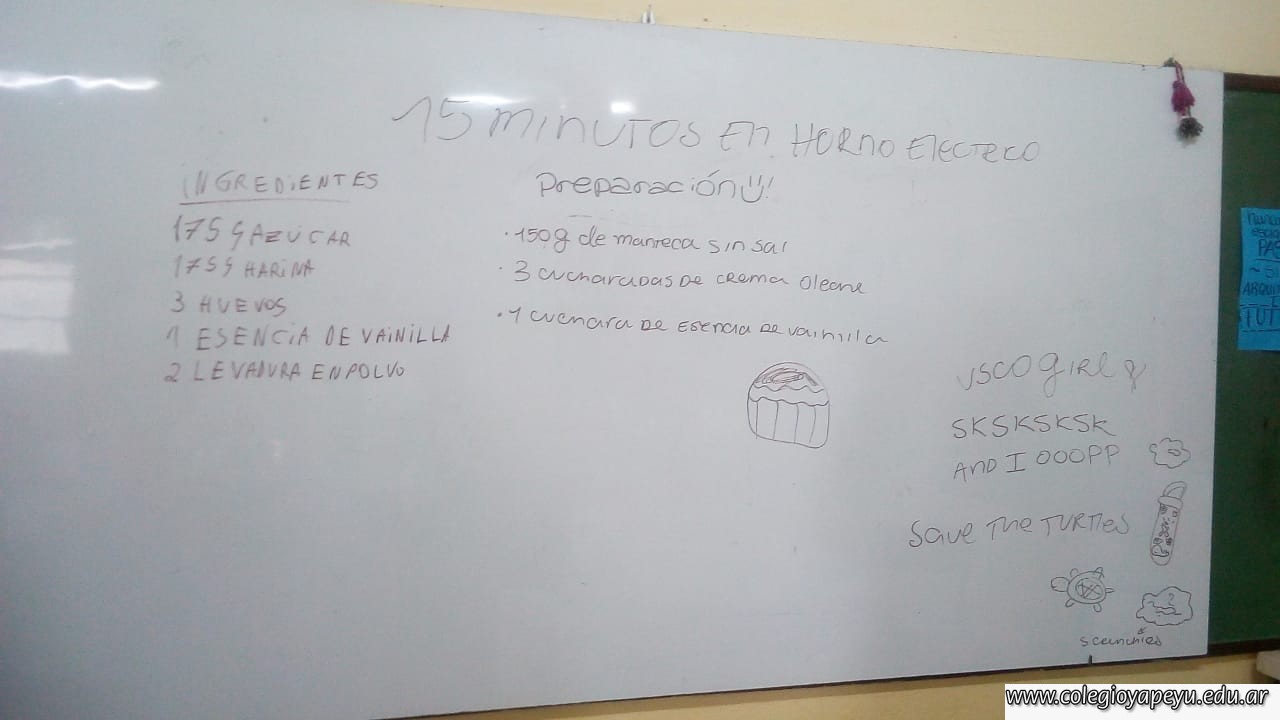 15 MINUTOS EN HORNO ELECTRICO
INGREDIENTES
175 g AZÚCAR
175 g HARINA
3 HUEVOS
1 ESENCIA DE VAINILLA
2 LEVADURA EN POLVO
Preparación!!
• 150g de manteca sin sal
• 3 cucharadas DE crema Oleane
• 1 cuchara DE Esencia De vainilla
VSCO GIRL
SKSKSKSK
AND I OOOPP
Save THE TURTles
scrunchies
PAS
ARQU
E
TUT
www.colegioyapeyu.edu.ar